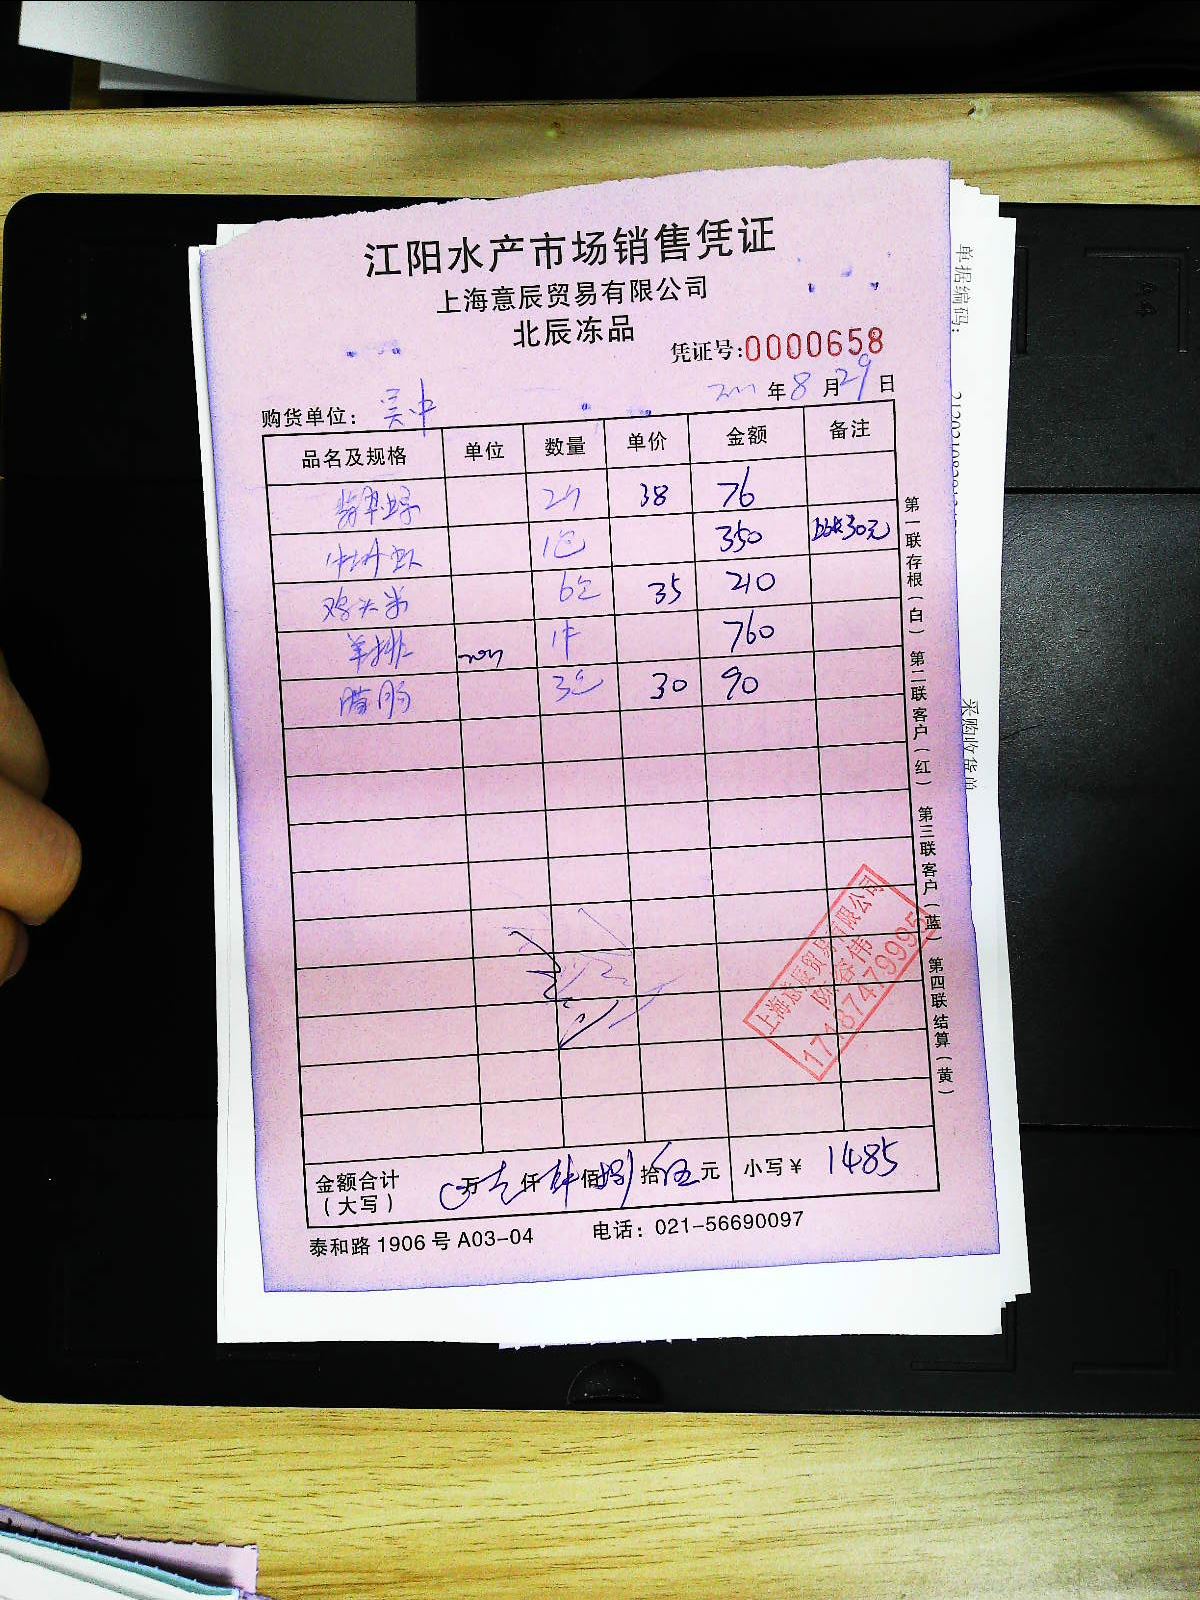 江阳水产市场销售凭证
上海意辰贸易有限公司
北辰冻品
凭证号:0000658
年8月29日
购货单位: 吴中
品名及规格 单位 数量 单价 金额 备注
翡翠螺 2个 38 76
1包 350 30元
鸡头米 6包 35 210
羊排 1件 760
腊肠 3包 30 90
金额合计(大写) 万壹仟肆佰捌拾伍元 小写¥ 1485
泰和路1906号A03-04 电话: 021-56690097
第一联存根(白) 第二联客户(红) 第三联客户(蓝) 第四联结算(黄)
上海意辰贸易有限公司
17187479995
单据编码:
采购收货单